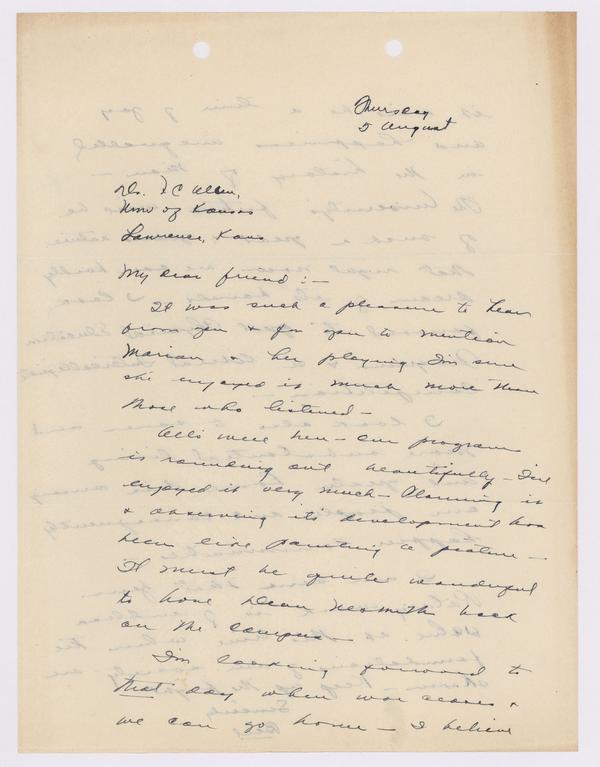 Thursday
5 August
Dr. F C Allen,
Univ of Kansas
Lawrence, Kans
My dear friend :—
It was such a pleasure to hear
from you & for you to mention
Marian & her playing. I'm sure
she enjoyed it much more than
those who listened —
All's well here — Our program
is rounding out beautifully — I've
enjoyed it very much — Planning it
& observing it's development has
been like painting a picture —
It must be quite wonderful
to have Dean Nesmith back
on the campus —
I'm looking forward to
that day when war ceases &
we can go home — I believe